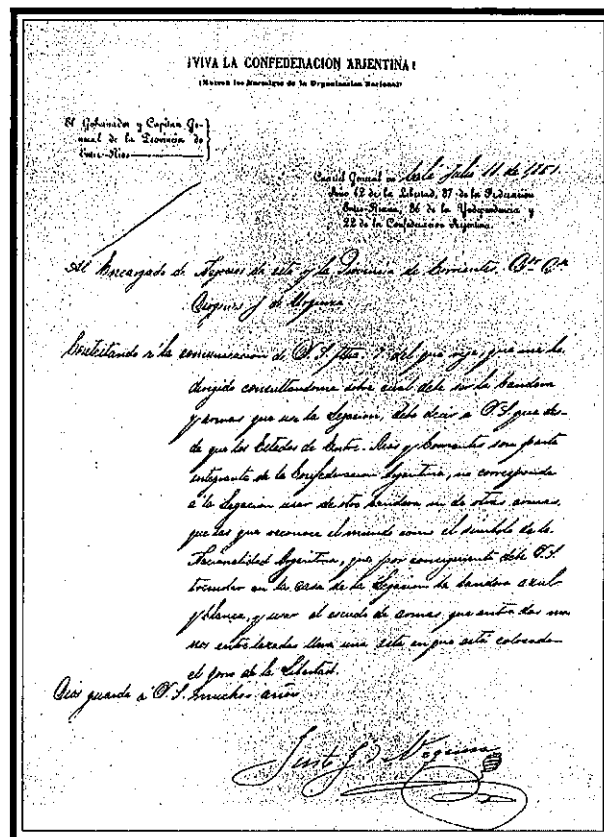 ¡VIVA LA CONFEDERACION ARJENTINA!
(Mueran los Enemigos de la Organizacion Nacional)
El Gobernador y Capitan Ge-
neral de la Provincia de
Entre-Rios
Cuartel General en Julio 11 de 1851.
Año 42 de la Libertad, 37 de la Federacion
Entre-Riana, 36 de la Yndependencia y
22 de la Confederacion Argentina.
Al Encargado de Negocios de esta y la Provincia de Corrientes,
J. de Urquiza
Contestando á la comunicacion de V. S. fha. 7 del que rije, que me ha
dirijido consultandome sobre cual debe ser la bandera
y armas que use la Legacion, debo decir a V. S. que des-
de que los Estados de Entre-Rios y Corrientes son parte
integrante de la Confederacion Argentina, no corresponde
á la Legacion usar de otra bandera ni de otras armas,
que las que reconoce el mundo como el simbolo de la
Nacionalidad Argentina, que por consiguiente debe V. S.
tremolar en la casa de la Legacion la bandera azul
y blanca, y usar el escudo de armas que entre dos ma-
nos entrelazadas lleva una asta en que está colocado
el gorro de la Libertad.
Dios guarde á V. S. muchos años
Justo J. de Urquiza